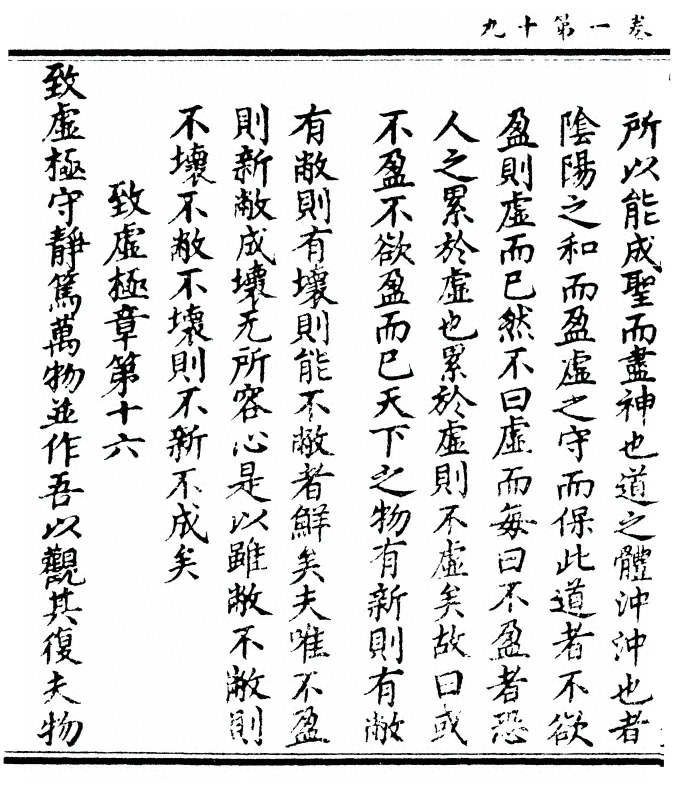 卷一第十九
所以能成聖而盡神也道之體沖沖也者
陰陽之和而盈虛之守而保此道者不欲
盈則虛而已然不曰虛而每曰不盈者恐
人之累於虛也累於虛則不虛矣故曰或
不盈不欲盈而已天下之物有新則有敝
有敝則有壞則能不敝者鮮矣夫唯不盈
則新敝成壞无所容心是以雖敝不敝則
不壞不敝不壞則不新不成矣
致虛極章第十六
致虛極守靜篤萬物並作吾以觀其復夫物